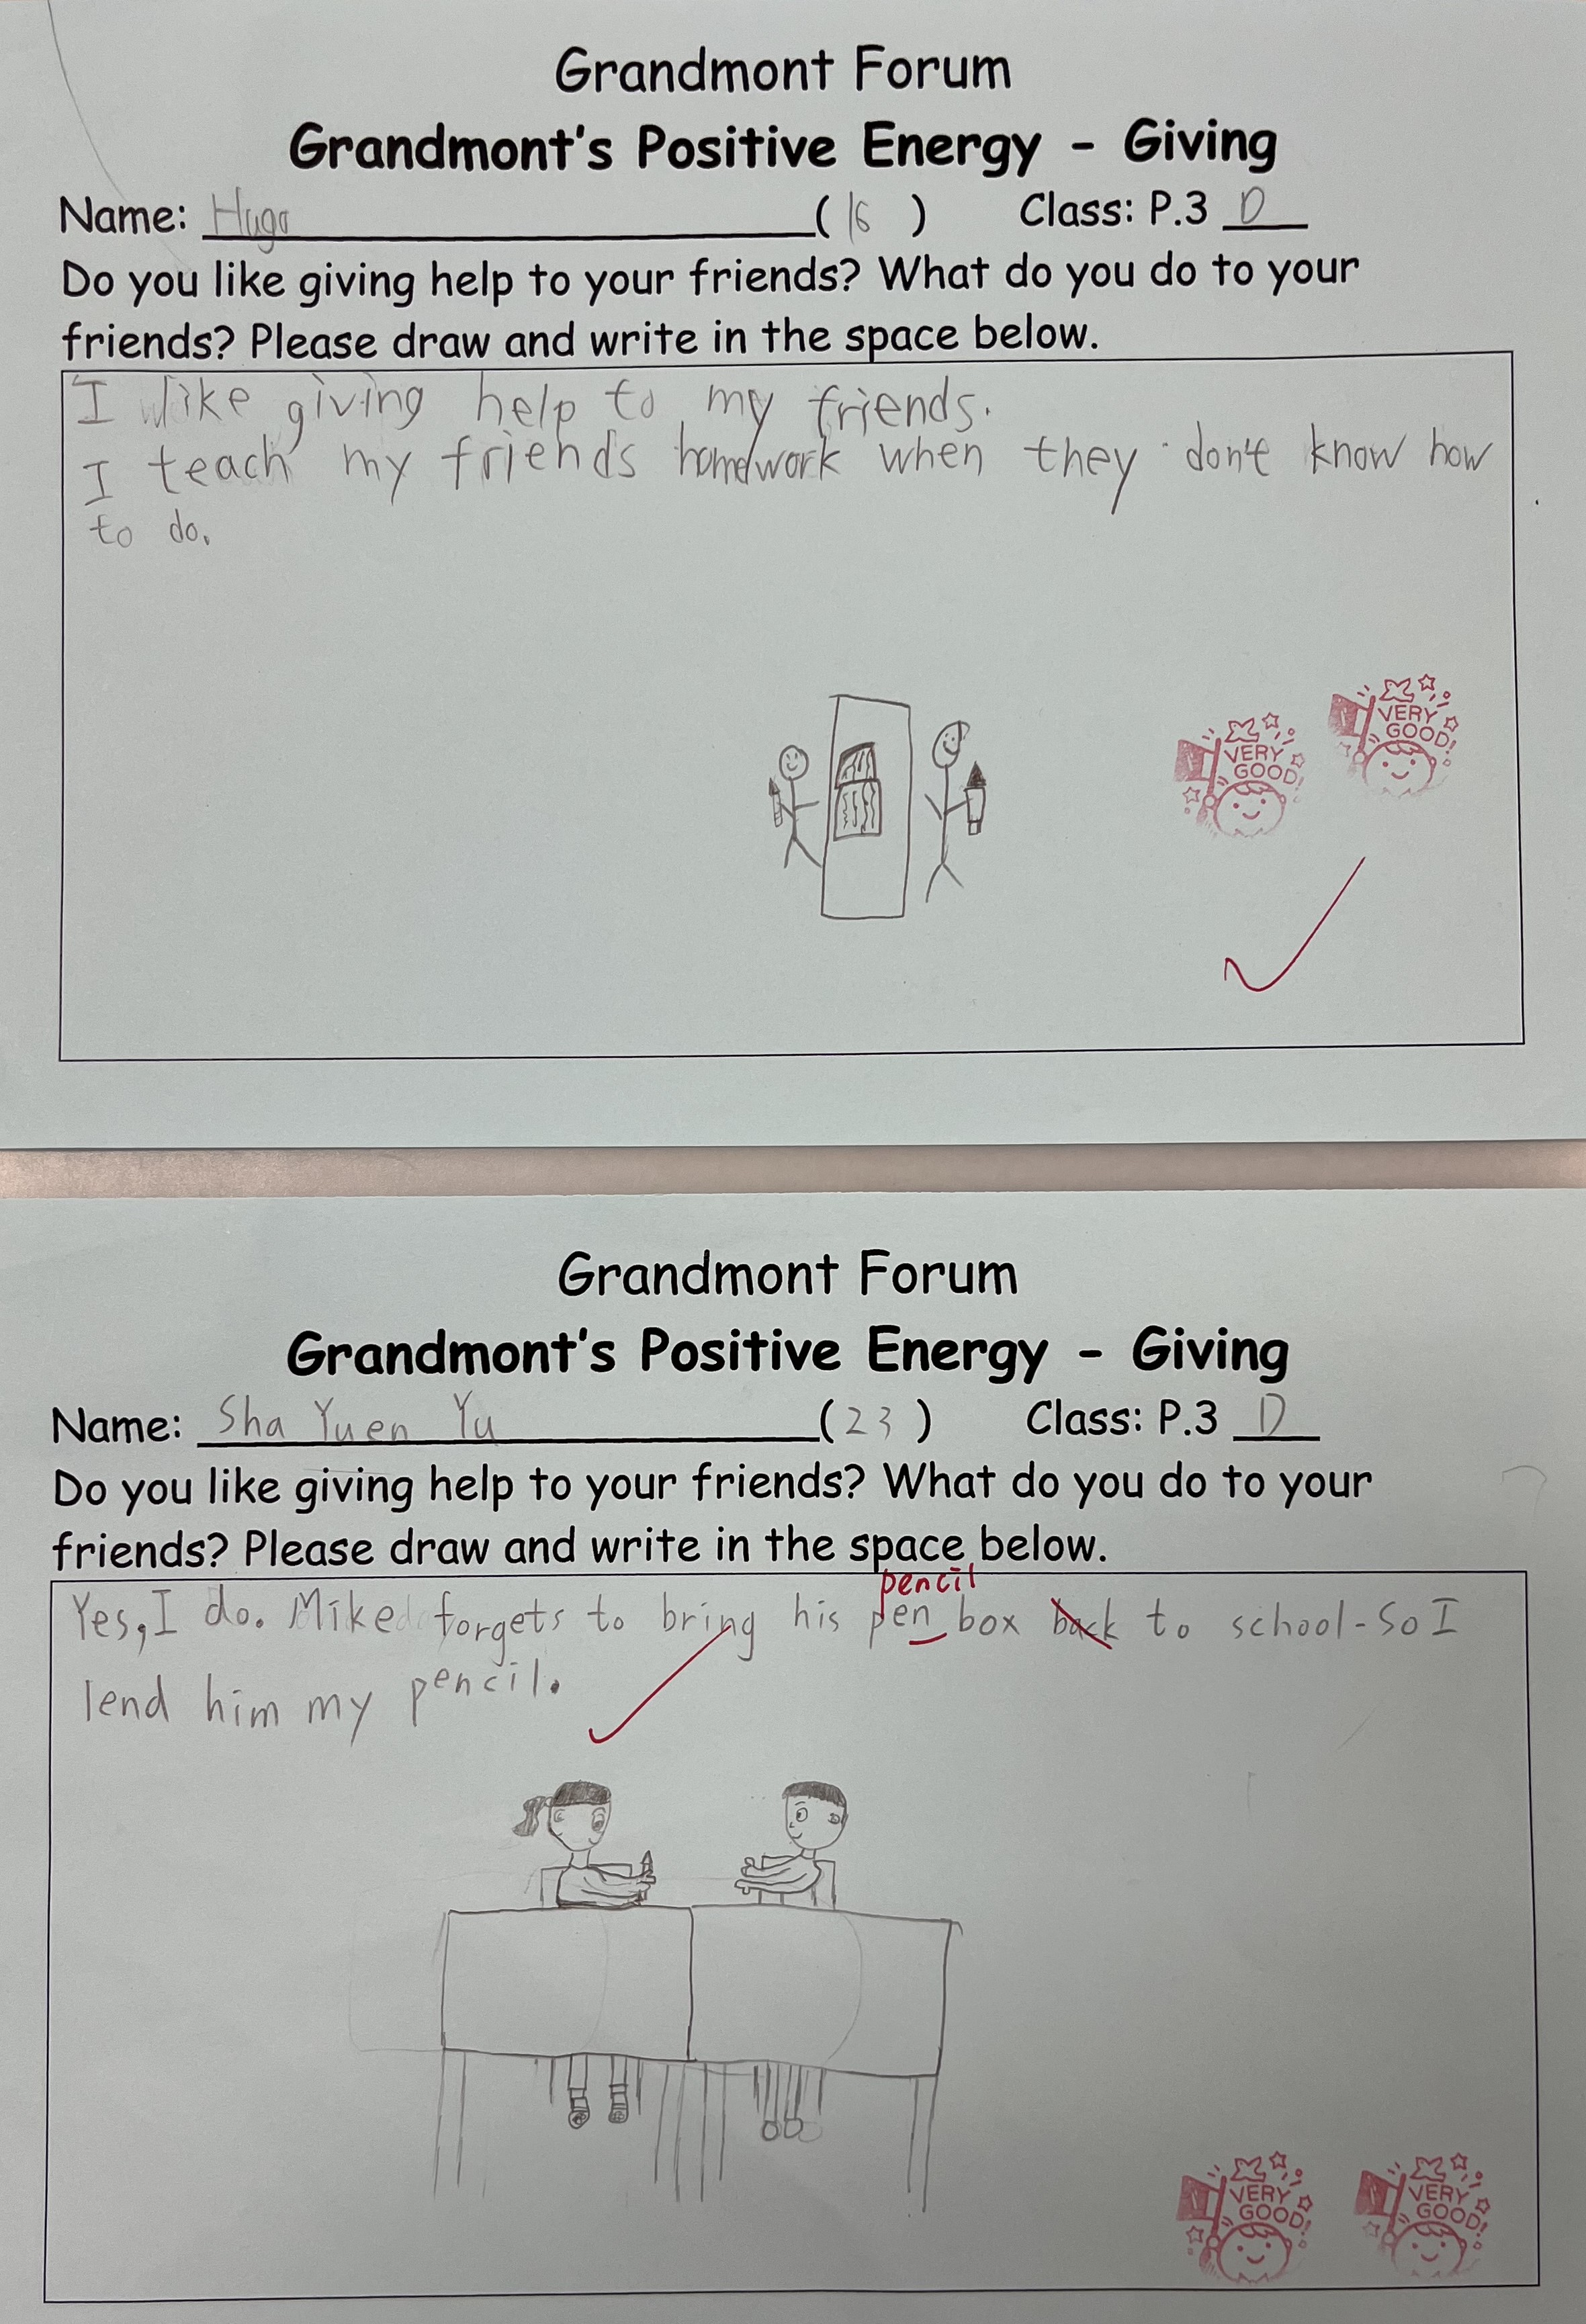 Grandmont Forum
Grandmont's Positive Energy - Giving
Name: Hugo (16) Class: P.3 D
Do you like giving help to your friends? What do you do to your
friends? Please draw and write in the space below.
I like giving help to my friends.
I teach my friends homework when they don't know how
to do.
VERY GOOD!
VERY GOOD!
Grandmont Forum
Grandmont's Positive Energy - Giving
Name: Sha Yuen Yu (23) Class: P.3 D
Do you like giving help to your friends? What do you do to your
friends? Please draw and write in the space below.
pencil
Yes, I do. Mike forgets to bring his pen box back to school. So I
lend him my pencil.
VERY GOOD!
VERY GOOD!